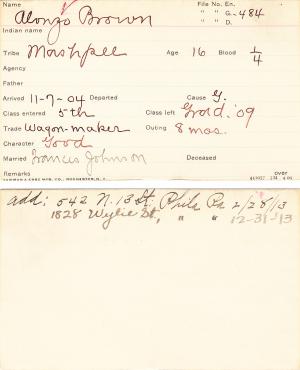 Name File No. En.
Alonzo Brown " " G- 484
Indian name " " D.
Tribe Mashpee Age 16 Blood 1/4
Agency
Father
Arrived 11-7-04 Departed Cause G.
Class entered 5th Class left Grad. '09
Trade Wagon-maker Outing 8 mos.
Character Good
Married Frances Johnson Deceased
Remarks over
add: 542 N. 13 St. Phila Pa 2/28/13
1828 Wylie St., " " 12-31-13